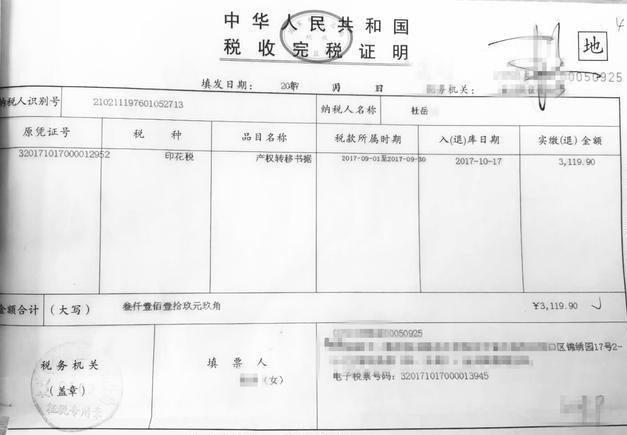 中华人民共和国
税收完税证明
地
填发日期: 20 年 月 日 税务机关: 0050925
纳税人识别号 210211197601052713 纳税人名称 杜岳
原凭证号 税 种 品目名称 税款所属时期 入(退)库日期 实缴(退)金额
320171017000012952 印花税 产权转移书据 2017-09-01至2017-09-30 2017-10-17 3,119.90
金额合计 (大写) 叁仟壹佰壹拾玖元玖角 ¥3,119.90
税务机关
(盖章)
征税专用章
填 票 人
(女)
0050925
区锦绣园17号2-
电子税票号码: 320171017000013945